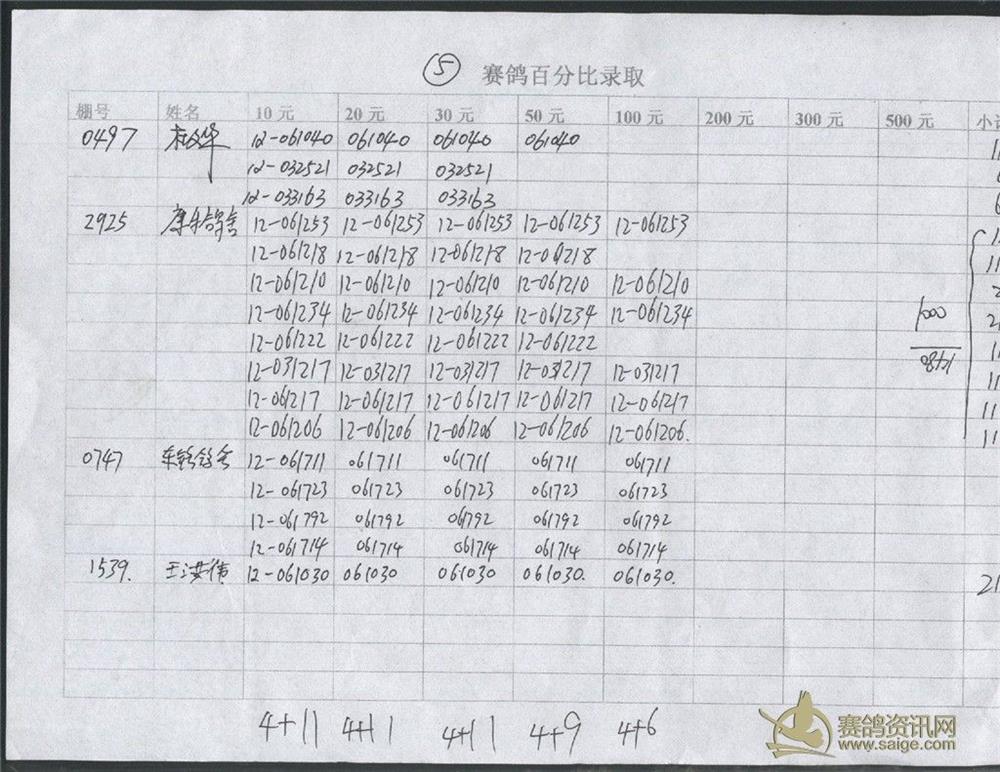 ⑤ 赛鸽百分比录取
棚号 姓名 10元 20元 30元 50元 100元 200元 300元 500元
0497 12-061040 061040 061040 061040
12-032521 032521 032521
12-033163 033163 033163
2925 康乐鸽舍 12-061253 12-061253 12-061253 12-061253 12-061253
12-061218 12-061218 12-061218 12-061218
12-061210 12-061210 12-061210 12-061210 12-061210
12-061234 12-061234 12-061234 12-061234 12-061234 1000
12-061222 12-061222 12-061222 12-061222
12-031217 12-031217 12-031217 12-031217 12-031217
12-061217 12-061217 12-061217 12-061217 12-061217
12-061206 12-061206 12-061206 12-061206 12-061206.
0747 12-061711 061711 061711 061711 061711
12-061723 061723 061723 061723 061723
12-061792 061792 061792 061792 061792
12-061714 061714 061714 061714 061714
1539. 王洪伟 12-061030 061030 061030 061030. 061030.
4+11 4+11 4+11 4+9 4+6
赛鸽资讯网
www.saige.com